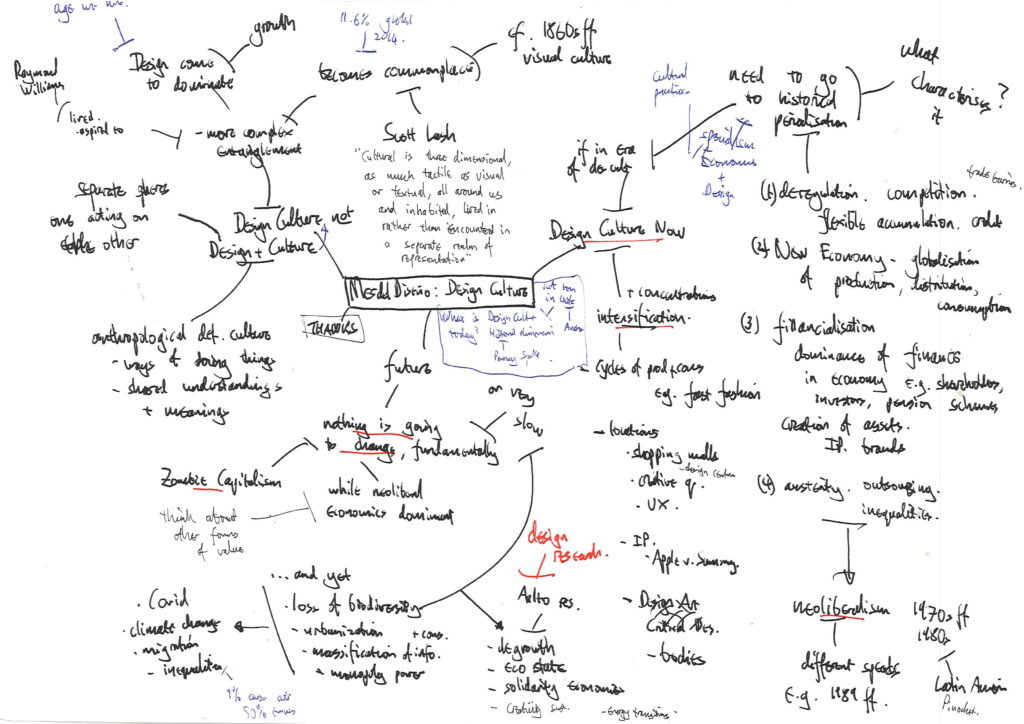 age we live.
growth
Design come
to dominate
Raymond
Williams
lived.
aspired to
- more complex
entanglement
11.6% global
2014.
becomes commonplace
cf. 1860s ff
visual culture
Scott Lash
"Cultural is three dimensional,
as much tactile as visual
or textual, all around us
and inhabited, lived in
rather than encountered in
a separate realm of
representation"
separate spheres
one acting on
other
Design Culture not
Design + Culture
anthropological def. culture
- ways of doing things
- shared understandings
+ meanings
Medd Diseño: Design Culture
THACKRS
What is Design Culture
today?
dimension
not
in
future
nothing is going
to change, fundamentally
or very
slow
Zombie Capitalism
while neoliberal
economics dominant
think about
other forms
of value
... and yet
- loss of biodiversity
- urbanization + cons.
- massification of info.
- monopoly power
- Covid
- climate change
- migration
- inequalities
1% over
50%
design
research.
Aalto res.
- degrowth
- eco state
- solidarity economies
- Creativity
- Energy transitions
cultural
practice
if in era
of des cult
Design Culture Now
+ concentrations
intensification.
- cycles of prod + cons
e.g. fast fashion
- locations
- shopping malls
- design centres
- creative q.
- UX.
- IP.
- Apple v. Samsung.
- Design Art
Critical Des.
- bodies
need to go
to historical
periodisation
what
characterises?
it
Economics
+
Design
(1) deregulation. competition.
flexible accumulation. credit
(2) New Economy - globalisation
of production, distribution,
consumption
(3) financialisation
dominance of finance
in economy e.g. shareholders,
investors, pension schemes
creation of assets.
IP. brands
(4) austerity. outsourcing.
inequalities.
neoliberalism
1970s ff
1980s
different speeds
E.g. 1989 ff.
Latin America
Pinochet.